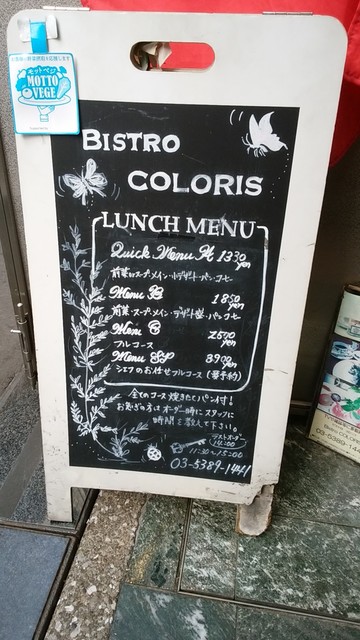 モットベジ
MOTTO
VEGE
BISTRO
COLORIS
LUNCH MENU
Quick Menu A 1330
yen
前菜orスープ・メイン・小デザート・パン・コーヒー
Menu B 1850
yen
前菜・スープ・メイン・デザート・パン・コーヒー
Menu C 2500
yen
フルコース
Menu SP 3900
yen
シェフのお任せフルコース(要予約)
全てのコース焼きたてパン付!
お急ぎの方はオーダー時にスタッフに
時間を教えて下さい。
ラストオーダー
14:00
11:30~15:00
03-5389-1441
03-5389-144